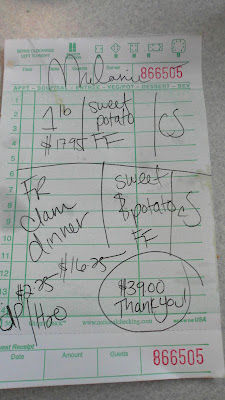 Date Table Guests Server
Melanie
866505
APPT - SOUP/SAL - ENTREE - VEG/POT - DESSERT - BEV
1
2
3
4
5
6
7
8
9
10
11
12
13
1 lb
$17.95
sweet
potato
FF
CS
FR
clam
dinner
$16.25
sweet
potato
FF
CS
$2.25
H20
$39.00
Thank you!
Guest Receipt
Date Amount Guests
866505